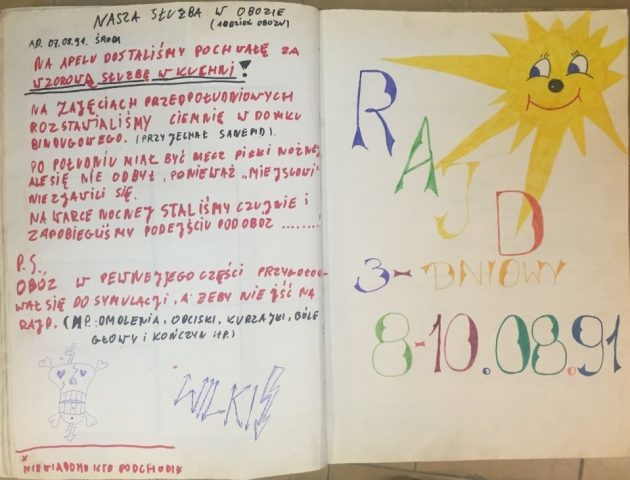 NASZA SŁUŻBA W OBOZIE
(1 DZIEŃ OBOZU)
07.08.91. ŚRODA
NA APELU DOSTALIŚMY POCHWAŁĘ ZA
WZOROWĄ SŁUŻBĘ W KUCHNI!
NA ZAJĘCIACH PRZEDPOŁUDNIOWYCH
ROZSTAWIALIŚMY CIEMNIĘ W DOMKU
(PRZYJECHAŁ SANEPID).
PO POŁUDNIU MIAŁ BYĆ MECZ PIŁKI NOŻNEJ,
ALE SIĘ NIE ODBYŁ, PONIEWAŻ „MIEJSCOWI"
NIE ZJAWILI SIĘ.
NA WARCE NOCNEJ STALIŚMY CZUJNIE I
ZAPOBIEGLIŚMY PODEJŚCIU POD OBÓZ .......*
P.S.
OBÓZ W PEWNEJ JEGO CZĘŚCI PRZYGOTOWY-
WAŁ SIĘ DO SYMULACJI, A ŻEBY NIE IŚĆ NA
RAJD. (NP. OMDLENIA, ODCISKI, KURZAJKI, BÓLE
GŁOWY I KOŃCZYN ITP.)
WILKI
* NIEWIADOMO KTO PODCHODZIŁ
RAJD
3-DNIOWY
8-10.08.91